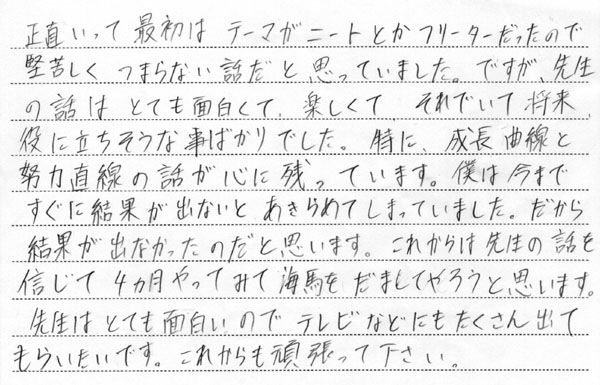 正直いって最初はテーマがニートとかフリーターだったので
堅苦しくつまらない話だと思っていました。ですが、先生
の話はとても面白くて、楽しくて、それでいて将来、
役に立ちそうな事ばかりでした。特に、成長曲線と
努力直線の話が心に残っています。僕は今まで
すぐに結果が出ないとあきらめてしまっていました。だから
結果が出なかったのだと思います。これからは先生の話を
信じて4ヵ月やってみて海馬をだましてやろうと思います。
先生はとても面白いのでテレビなどにもたくさん出て
もらいたいです。これからも頑張って下さい。